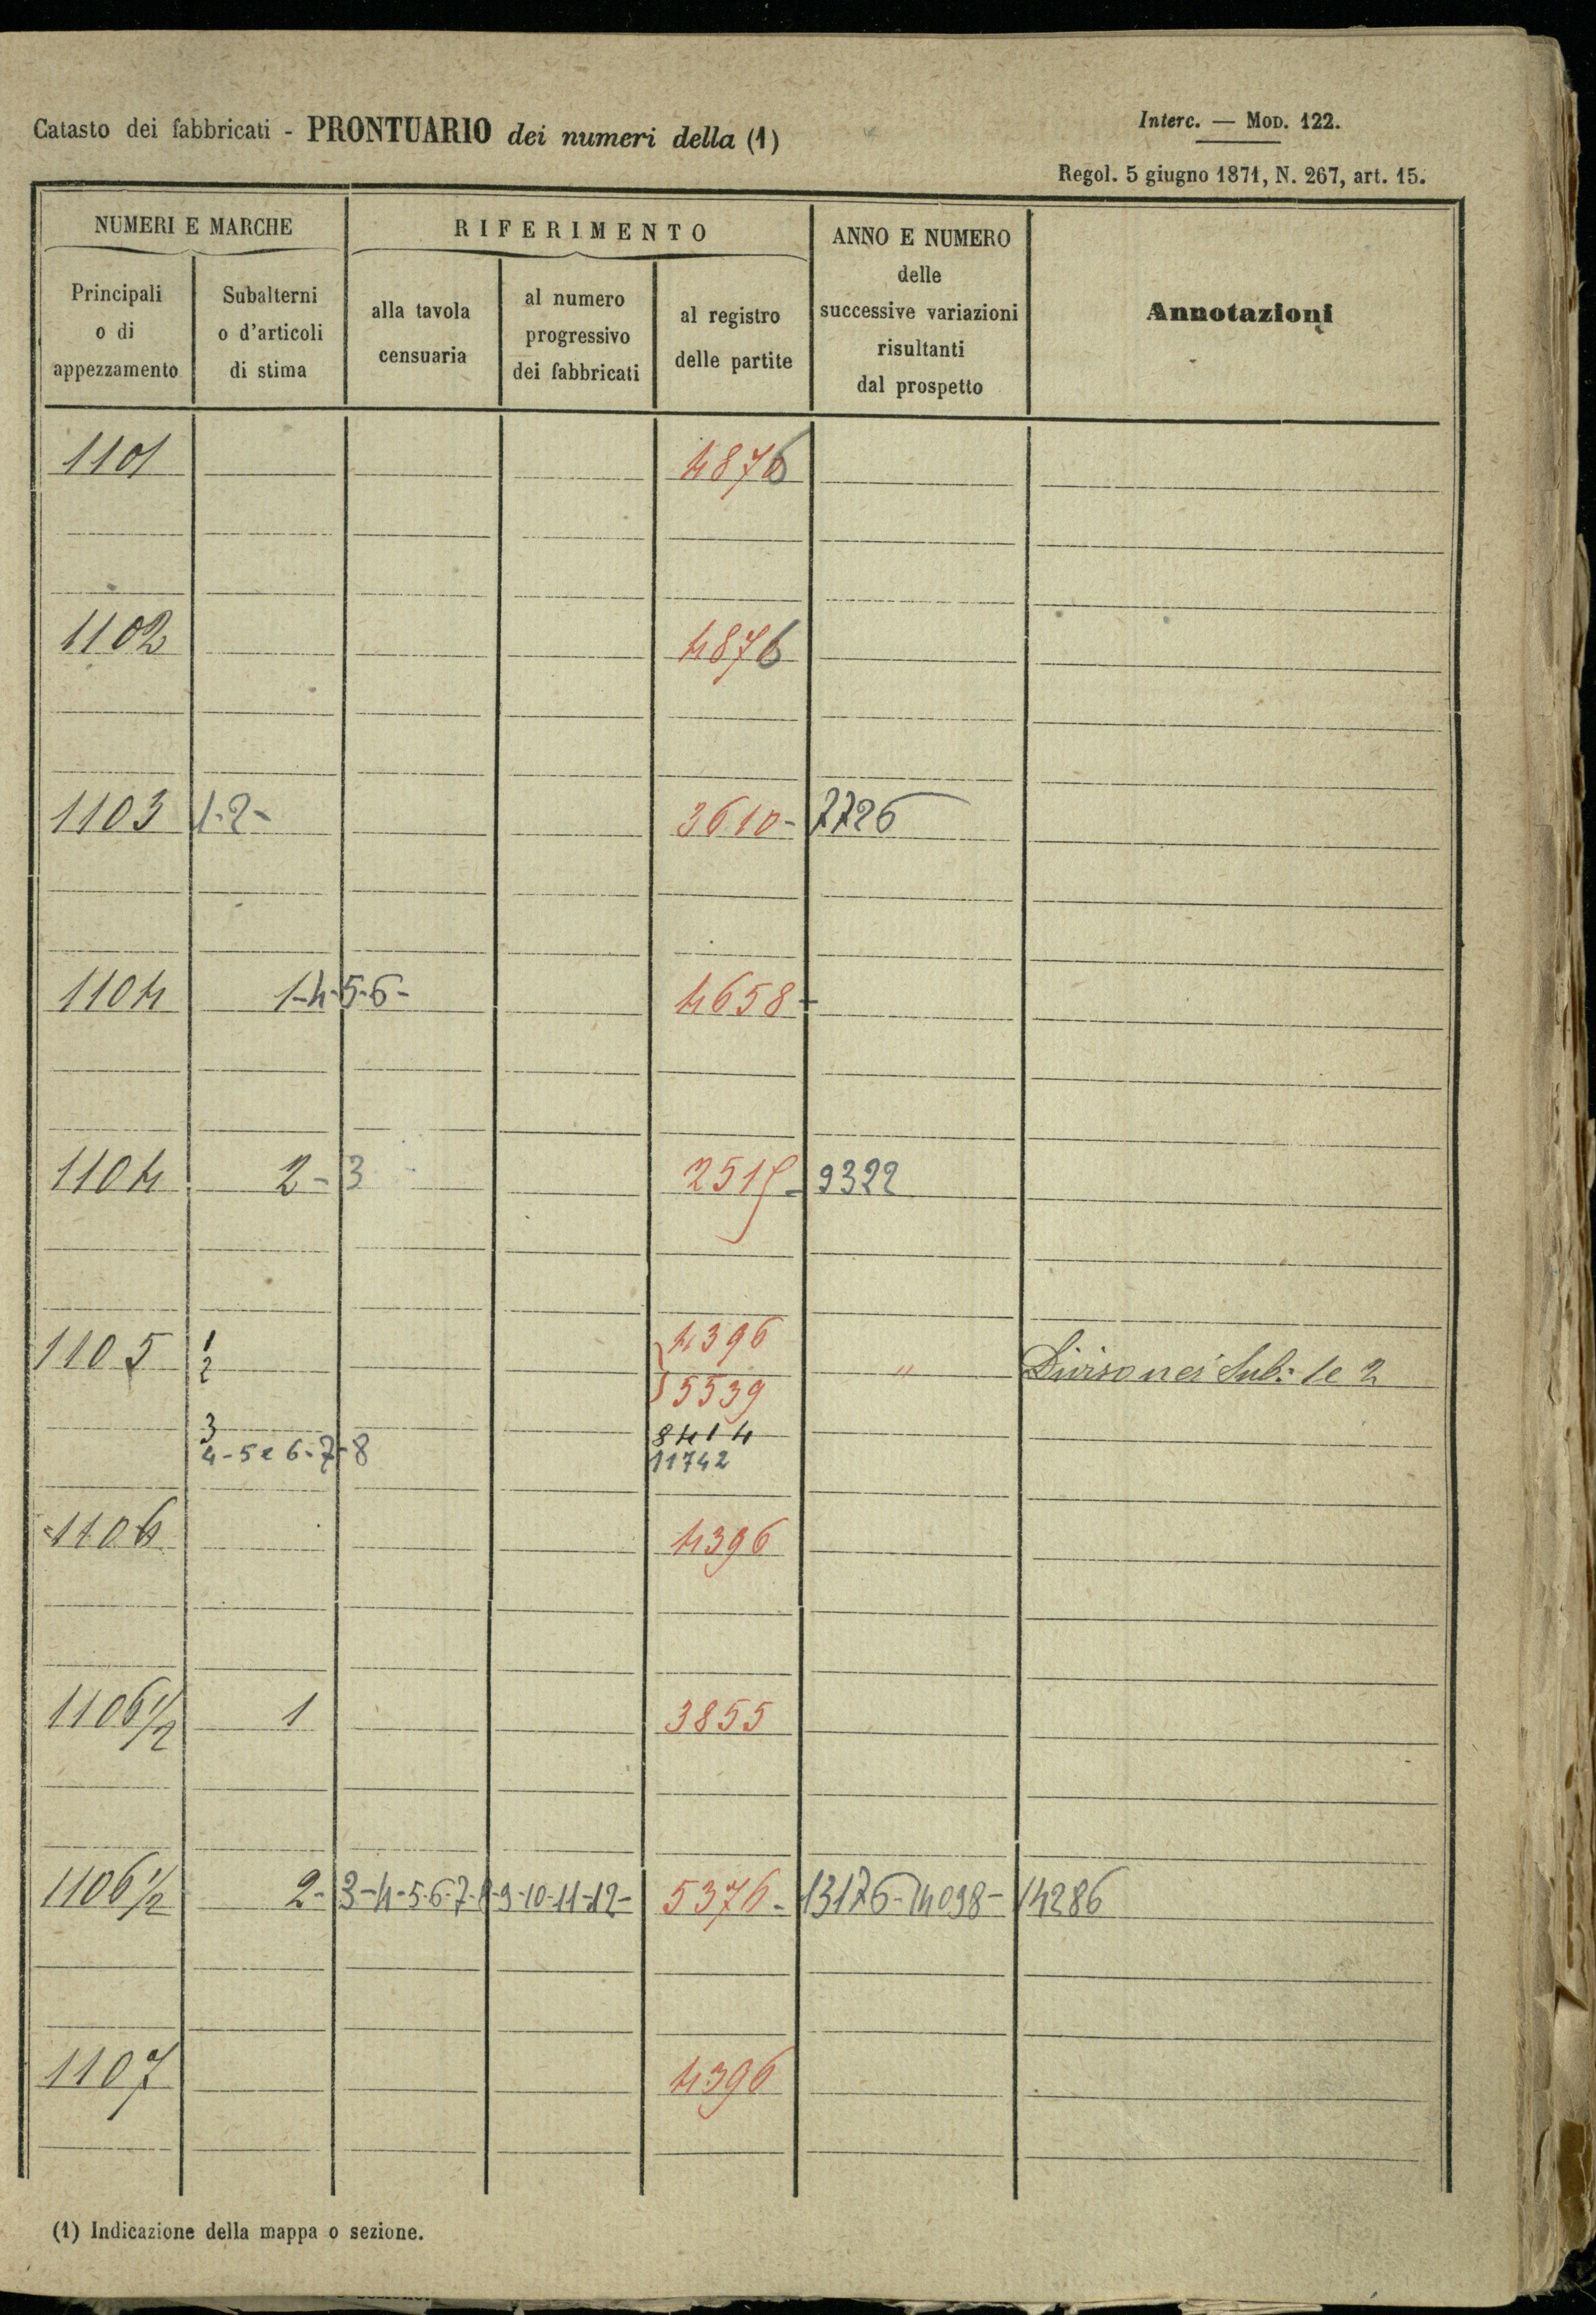 Catasto dei fabbricati - PRONTUARIO dei numeri della (1)
Interc. — MOD. 122.
Regol. 5 giugno 1871, N. 267, art. 15.
NUMERI E MARCHE
RIFERIMENTO
ANNO E NUMERO delle successive variazioni risultanti dal prospetto
Annotazioni
Principali o di appezzamento
Subalterni o d'articoli di stima
alla tavola censuaria
al numero progressivo dei fabbricati
al registro delle partite
1101 4876
1102 4876
1103 1-2- 3610- 7726
1104 1-4-5-6- 4658-
1104 2-3 2515- 9322
1105 1 4396
2 5539 " Diviso nei Sub: 1 e 2
3 8414
4-5 e 6-7-8 11742
1106 4396
1106 1/2 1 3855
1106 1/2 2-3-4-5-6-7-8-9-10-11-12- 5376- 13176-14098-14286
1107 4396
(1) Indicazione della mappa o sezione.